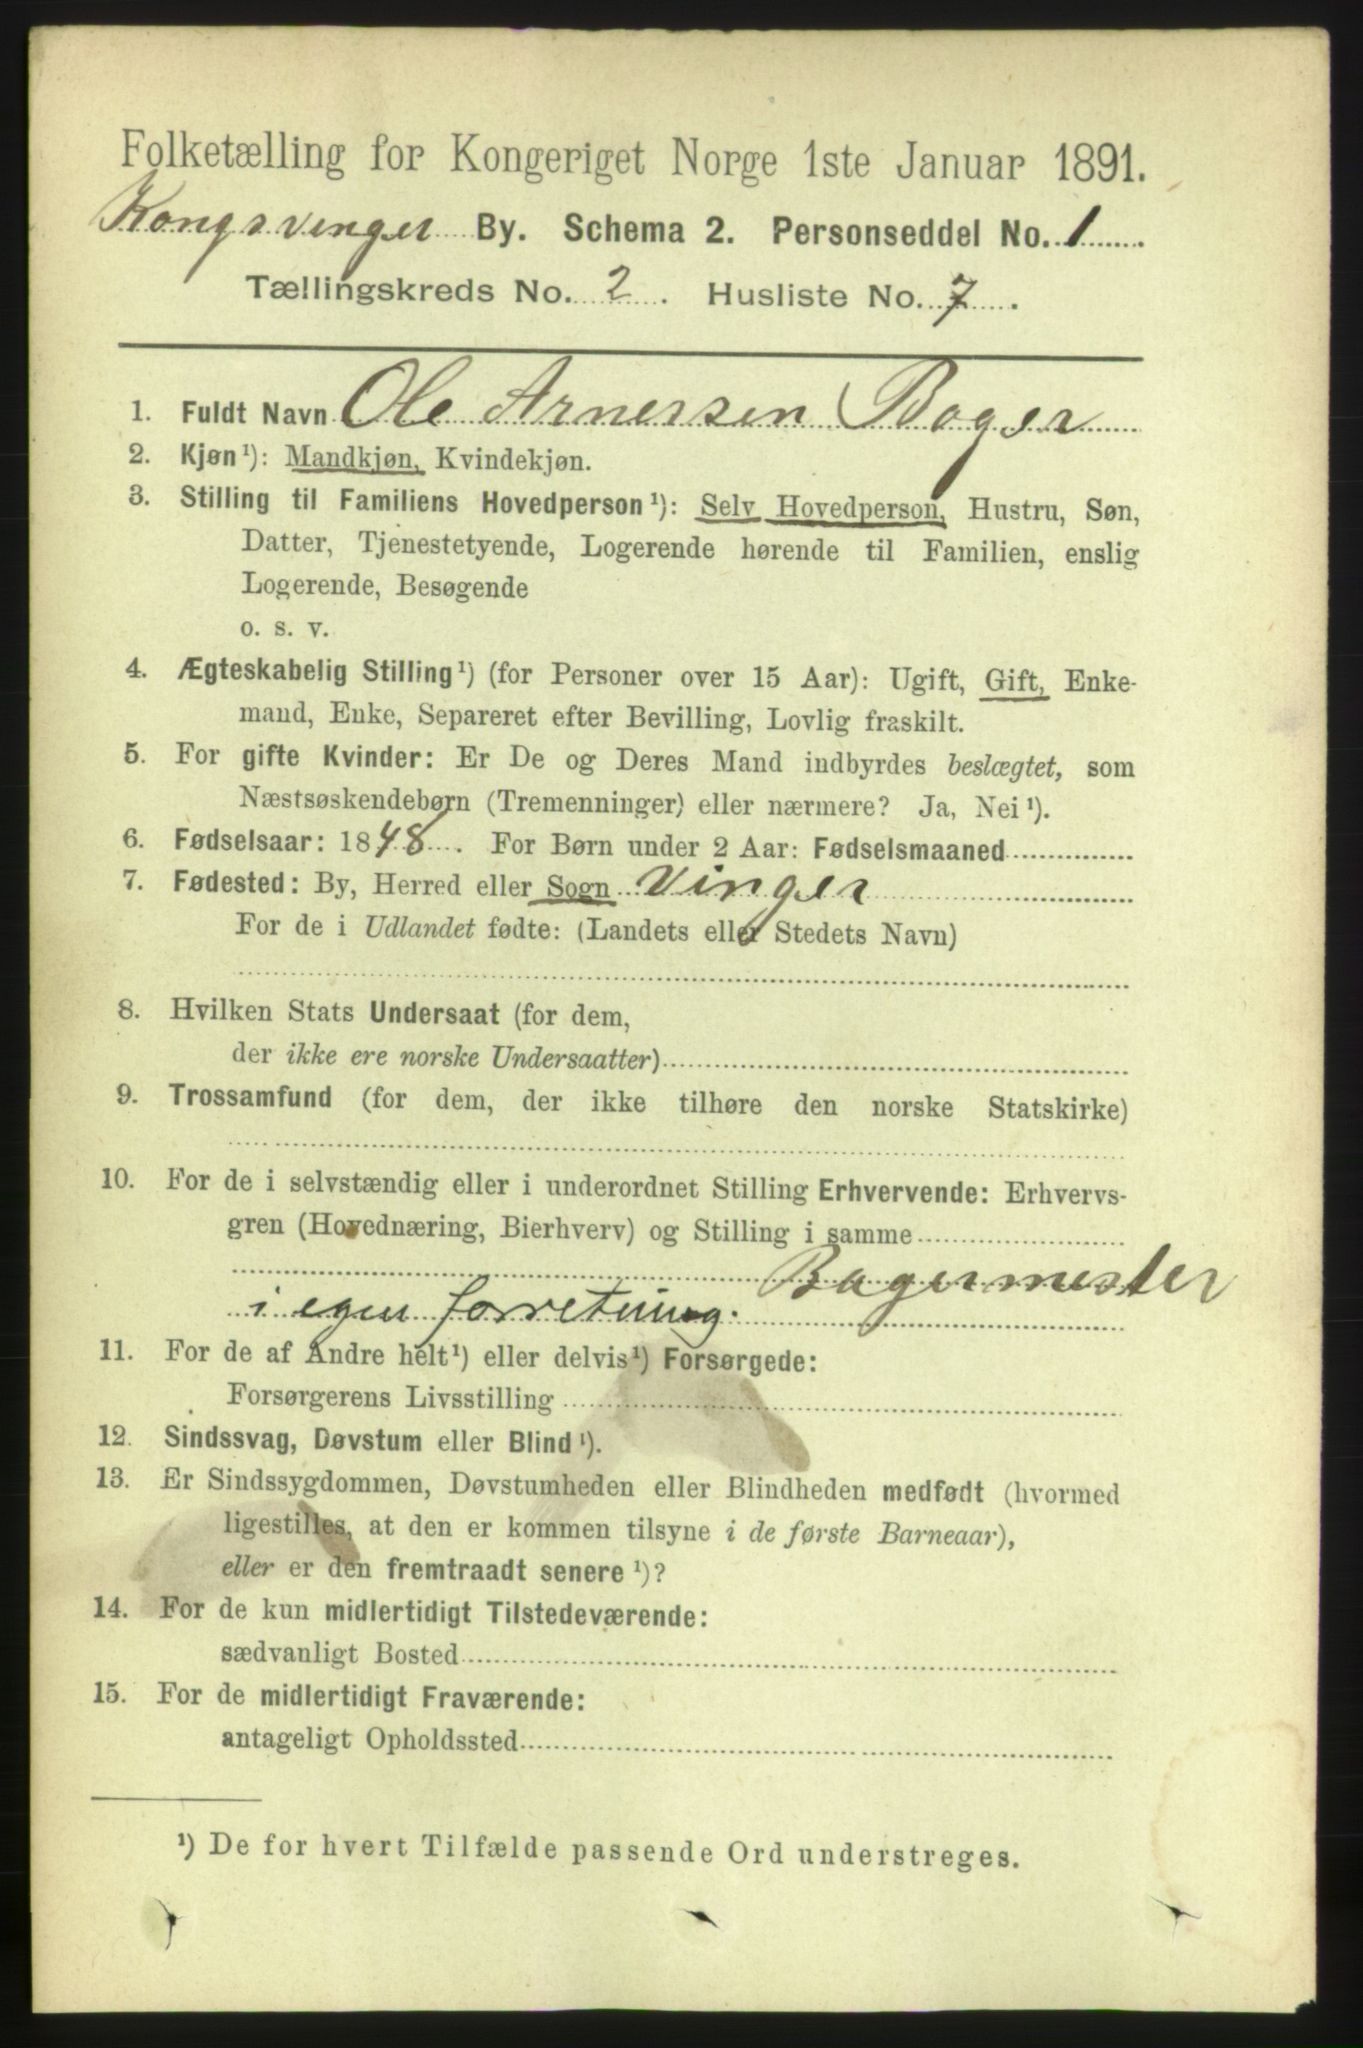 Folketælling for Kongeriget Norge 1ste Januar 1891.
Kongsvinger By. Schema 2. Personseddel No. 1
Tællingskreds No. 2. Husliste No. 7.
1. Fuldt Navn Ole Arnersen Bager
2. Kjøn¹): Mandkjøn, Kvindekjøn.
3. Stilling til Familiens Hovedperson¹): Selv Hovedperson, Hustru, Søn,
Datter, Tjenestetyende, Logerende hørende til Familien, enslig
Logerende, Besøgende
o. s. v.
4. Ægteskabelig Stilling¹) (for Personer over 15 Aar): Ugift, Gift, Enke-
mand, Enke, Separeret efter Bevilling, Lovlig fraskilt.
5. For gifte Kvinder: Er De og Deres Mand indbyrdes beslægtet, som
Næstsøskendebørn (Tremenninger) eller nærmere? Ja, Nei¹).
6. Fødselsaar: 1848. For Børn under 2 Aar: Fødselsmaaned
7. Fødested: By, Herred eller Sogn Vinger
For de i Udlandet fødte: (Landets eller Stedets Navn)
8. Hvilken Stats Undersaat (for dem,
der ikke ere norske Undersaatter)
9. Trossamfund (for dem, der ikke tilhøre den norske Statskirke)
10. For de i selvstændig eller i underordnet Stilling Erhvervende: Erhvervs-
gren (Hovednæring, Bierhverv) og Stilling i samme
Bagermester
i egen forretning.
11. For de af Andre helt¹) eller delvis¹) Forsørgede:
Forsørgerens Livsstilling
12. Sindssvag, Døvstum eller Blind¹).
13. Er Sindssygdommen, Døvstumheden eller Blindheden medfødt (hvormed
ligestilles, at den er kommen tilsyne i de første Barneaar),
eller er den fremtraadt senere¹)?
14. For de kun midlertidigt Tilstedeværende:
sædvanligt Bosted
15. For de midlertidigt Fraværende:
antageligt Opholdssted
¹) De for hvert Tilfælde passende Ord understreges.